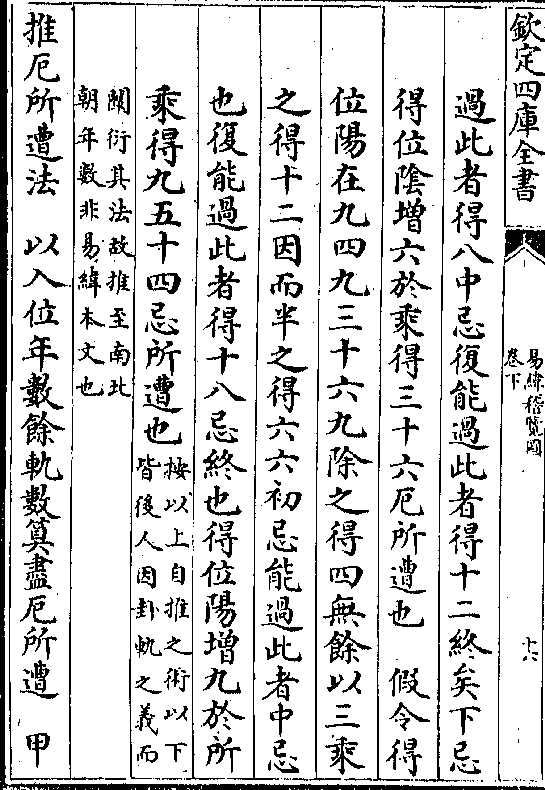 欽定四庫全書
易緯稽覽圖
卷下
十六
過此者得八中忌復能過此者得十二終矣下忌
得位陰增六於乘得三十六厄所遭也　假令得
位陽在九四九三十六九除之得四無餘以三乘
之得十二因而半之得六六初忌能過此者中忌
也復能過此者得十八忌終也得位陽增九於所
乘得九五十四忌所遭也
按以上自推之術以下
皆後人因卦軌之義而
關衍其法故推至南北
朝年數非易緯本文也
推厄所遭法　以入位年數餘軌數算盡厄所遭　甲